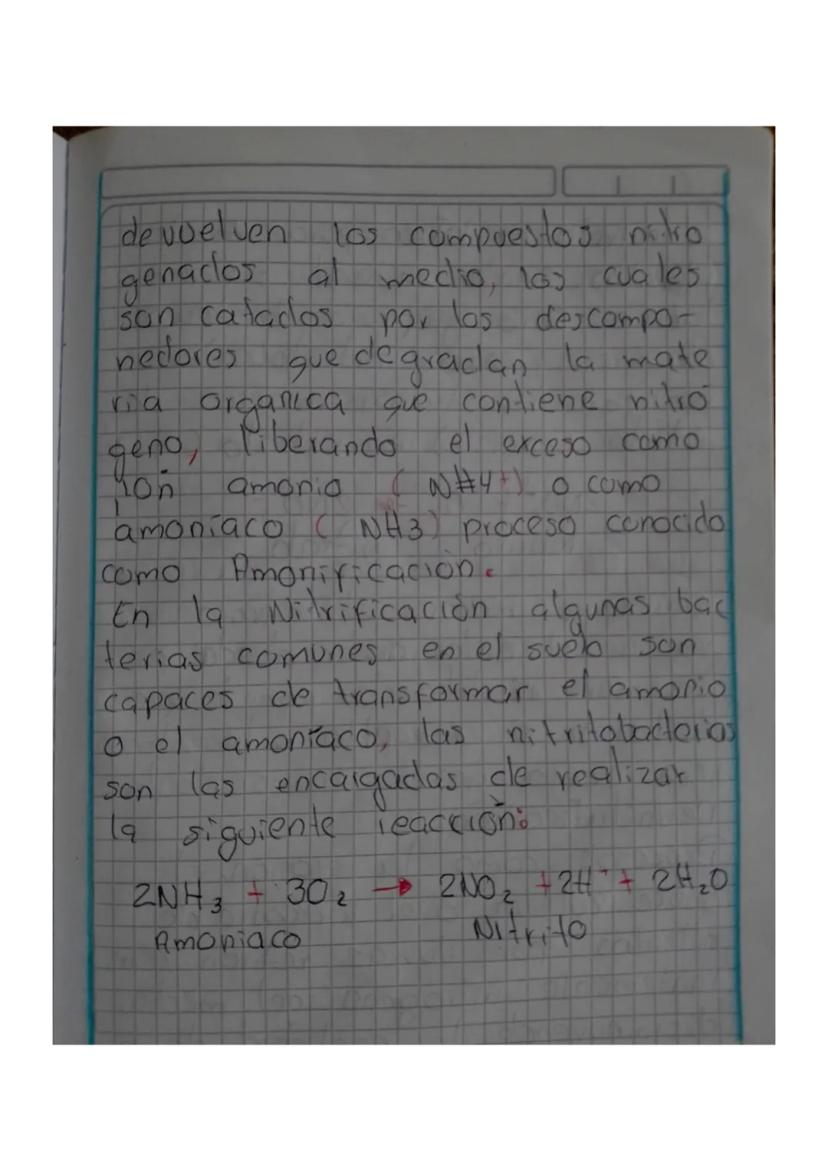 devuelven los compuestos nitro
genados al medio, los cuales
son catados por los descompo-
nedores que degradan la mate
ria organica que contiene nitró
geno, liberando el exceso como
ión amonio (NH4+) o como
amoníaco (NH3) proceso conocido
como Amonificación.
En la Nitrificación algunas bac
terias comunes en el suelo son
capaces de transformar el amonio
o el amoníaco, las nitritobacterias
son las encargadas de realizar
la siguiente reacción:
2NH₃ + 3O₂ → 2NO₂ + 2H⁺ + 2H₂O
Amoniaco Nitrito